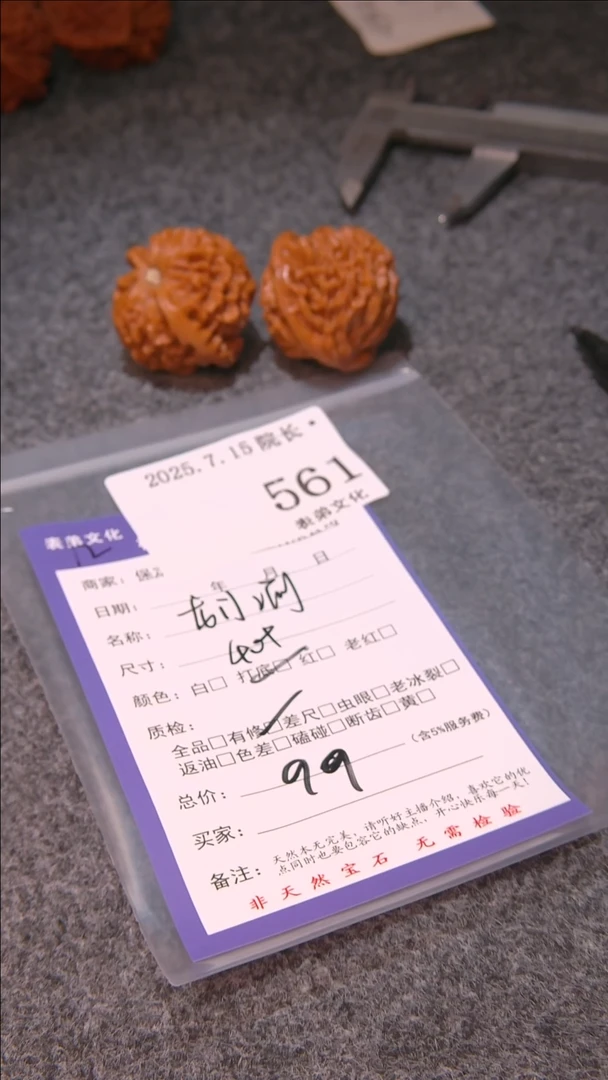 2025.7.15院长·
561
表弟文化
表弟文化
商家：保
日期： 年 月 日
名称：
尺寸： 40+
颜色：白□ 打底□ 红□ 老红□
质检：
全品□有修□差尺□虫眼□老冰裂□
返油□色差□磕碰□断齿□黄□
总价： 99 （含5%服务费）
买家：
备注： 天然木无完美，请听好主播介绍，喜欢它的优
点同时也要包容它的缺点，开心快乐每一天！
非天然宝石 无需检验